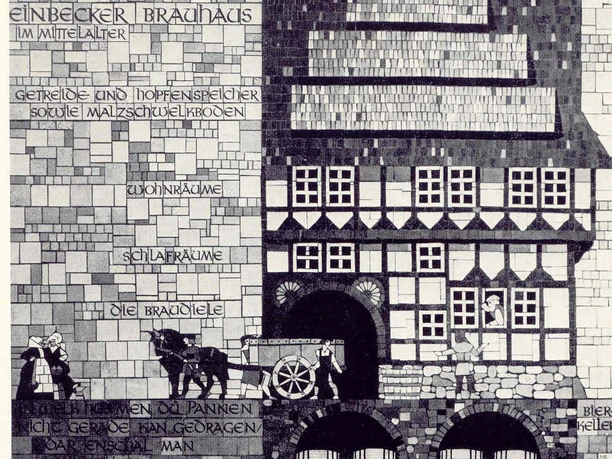 EINBECKER BRAUHAUS
IM MITTELALTER
GETREIDE- UND HOPFENSPEICHER
SOWIE MALZSCHWELKBODEN
WOHNRÄUME
SCHLAFRÄUME
DIE BRAUDIELE
IN WELK DU PANNEN
NICHT GERADE KAN GEDRAGEN/
DAR MAN
BIER-
KELLER